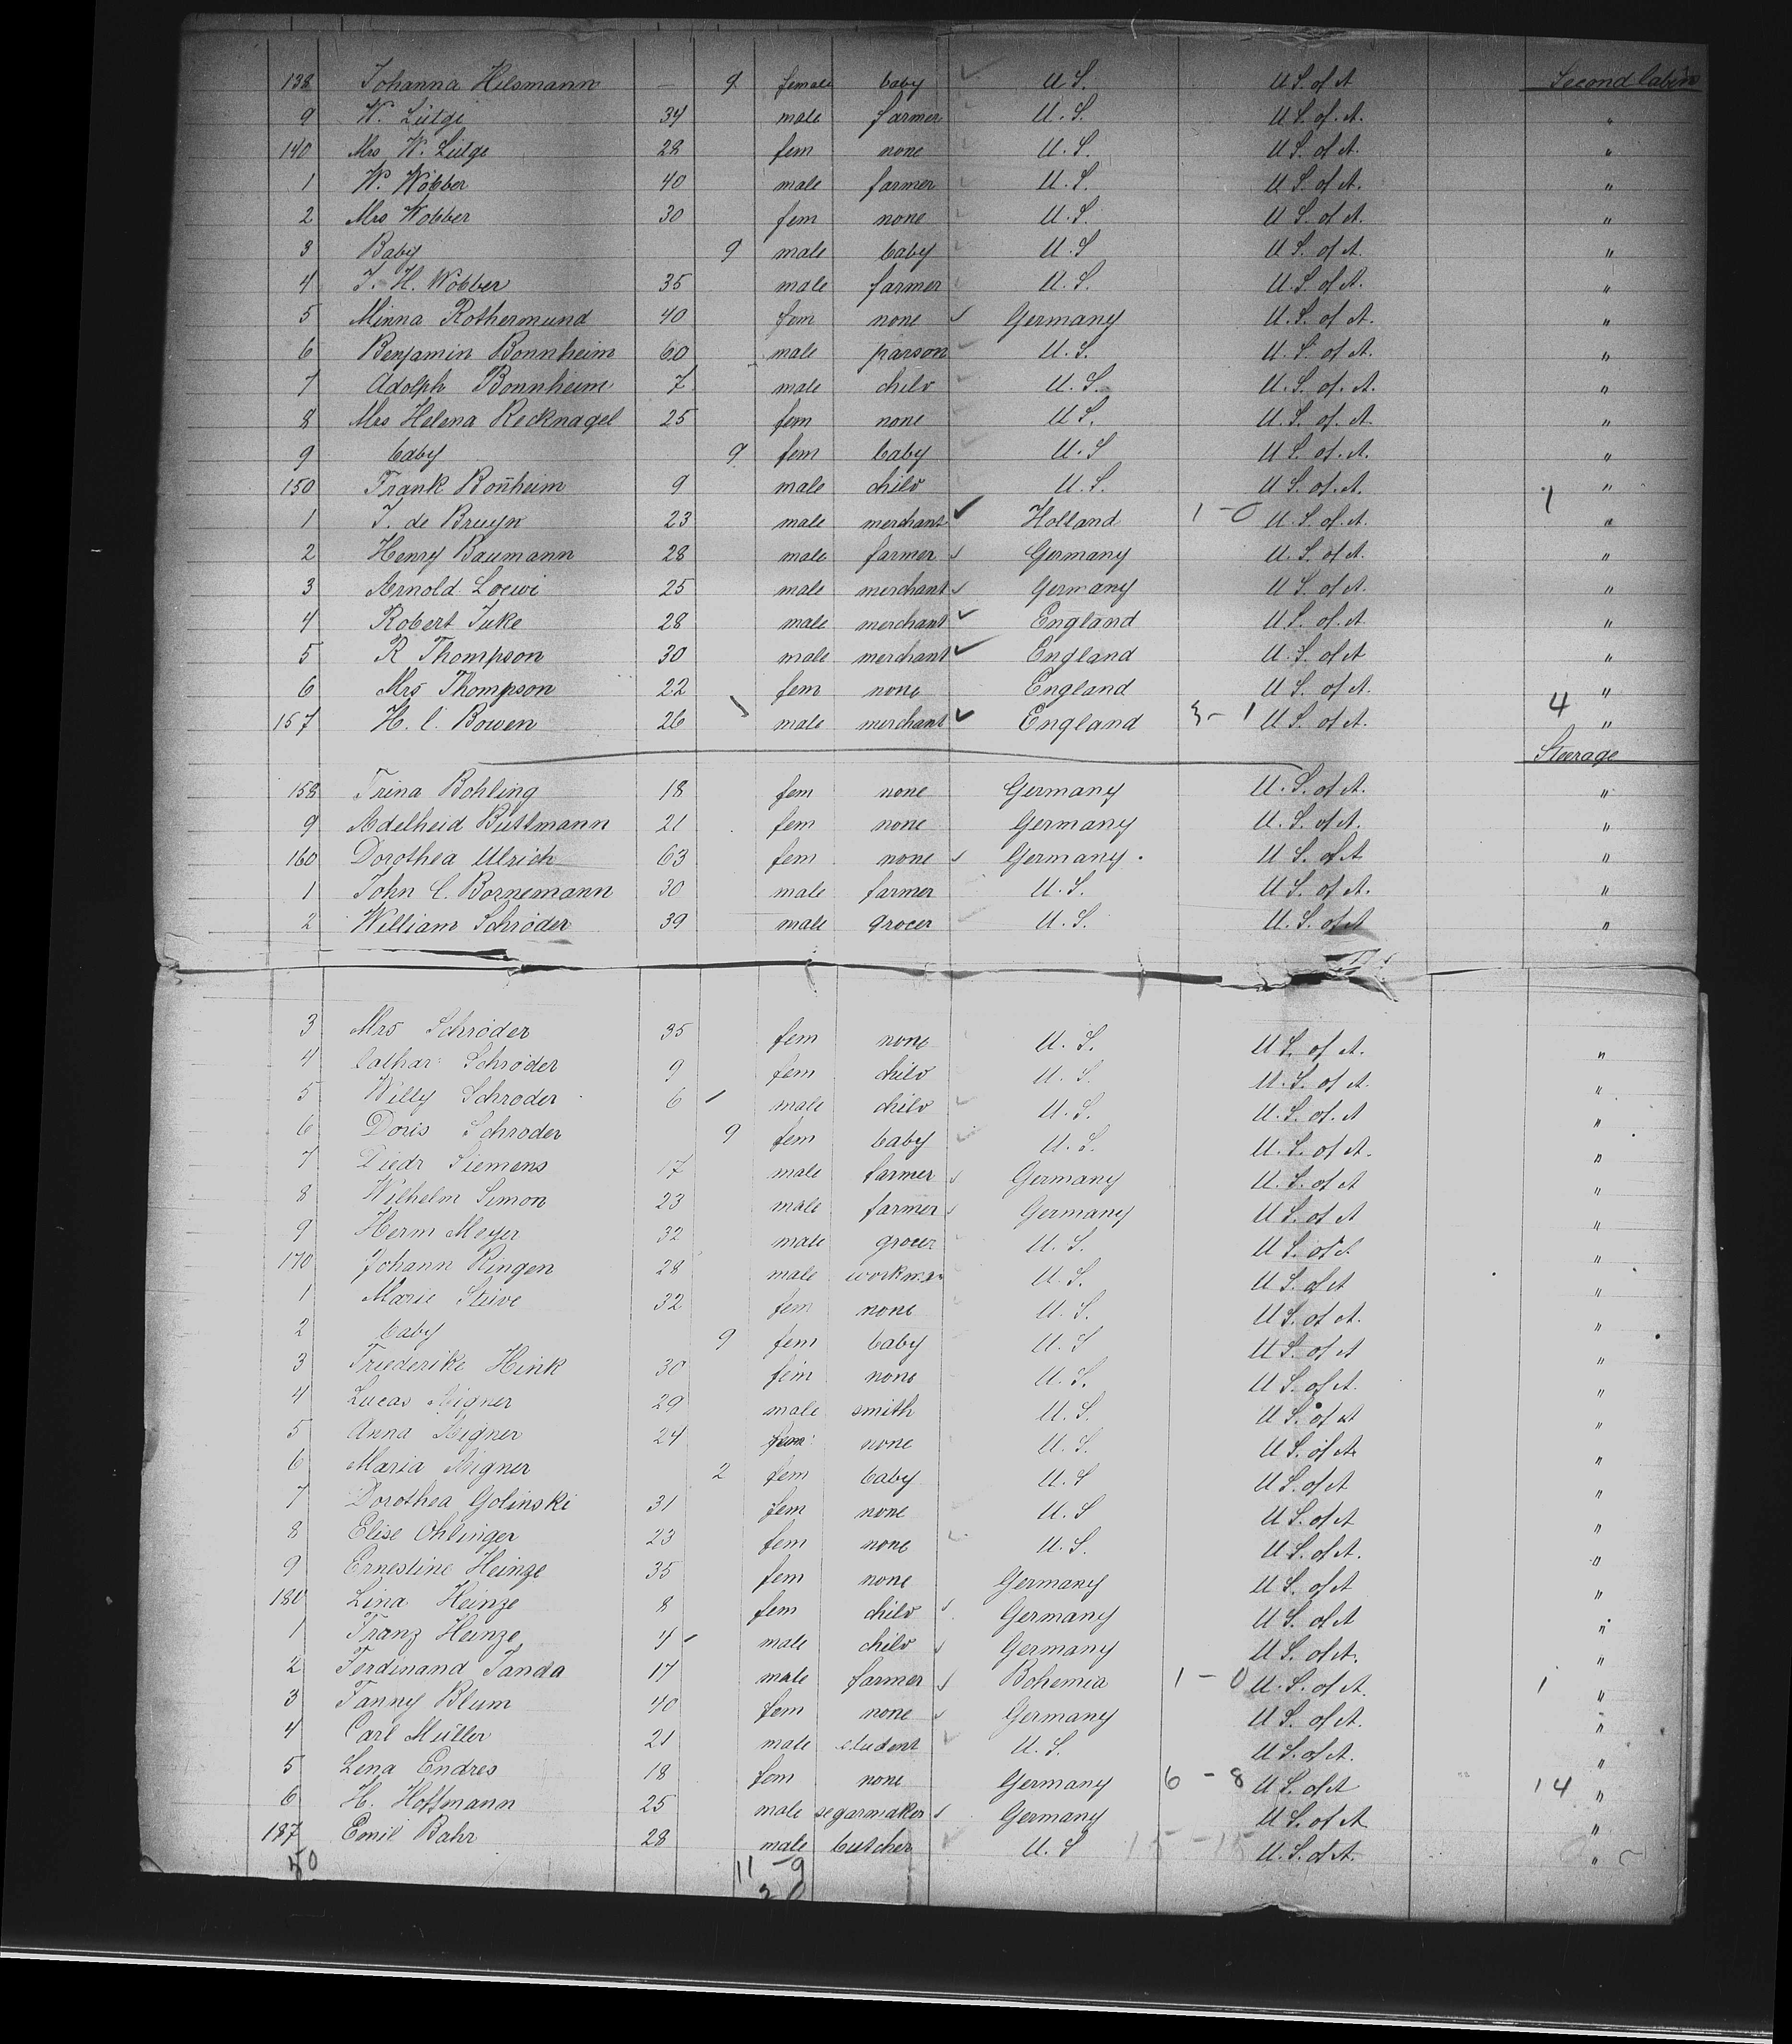 138 Johanna Hilsmann — 9 female baby U S. U S. of A Second Cabin
9 W. Lütge 34 male farmer U. S. U S. of. A. "
140 Mrs W. Lütge 28 fem none U. S. U S. of A. "
1 W. Wöbber 40 male farmer U. S. U S. of A. "
2 Mrs Wobber 30 fem none U. S. U S. of A. "
3 Baby 9 male baby U. S U S. of A. "
4 J. H. Wöbber 35 male farmer U. S. U. S. of A. "
5 Minna Rothermund 40 fem none Germany U. S. of A. "
6 Benjamin Bonnheim 60 male parson U. S. U. S. of A. "
7 Adolph Bonnheim 7 male child U. S. U. S. of. A. "
8 Mrs Helena Recknagel 25 fem none U S. U. S. of. A. "
9 baby 9 fem baby U. S U S. of. A. "
150 Frank Bon̄heim 9 male child U. S. U S. of. A. "
1 J. de Bruyn 23 male merchant Holland 1 - 0 U. S. of. A. 1 "
2 Henry Baumann 28 male farmer Germany U. S. of A. "
3 Arnold Loewi 25 male merchant Germany U S. of A. "
4 Robert Juke 28 male merchant England U S. of. A. "
5 R Thompson 30 male merchant England U. S. of A "
6 Mrs Thompson 22 fem none England U S. of A. "
157 H. C. Bowen 26 male merchant England 3 - 1 U S. of A. 4 "
Steerage
158 Trina Bohling 18 fem none Germany U. S. of A. "
9 Adelheid Büttmann 21 fem none Germany U. S. of A. "
160 Dorothea Ulrich 63 fem none Germany. U S. of A "
1 John C. Bornemann 30 male farmer U. S. U S. of A. "
2 William Schröder 39 male grocer U. S. U. S. of A "
3 Mrs Schröder 35 fem none U. S. U S. of A. "
4 Cathar: Schröder 9 fem child U. S. U. S. of A. "
5 Willy Schröder 6 male child U. S. U. S. of. A "
6 Doris Schröder 9 fem baby U. S. U. S. of A. "
7 Diedr Siemens 17 male farmer Germany U. S. of A "
8 Wilhelm Simon 23 male farmer Germany U S. of A "
9 Herm Meyer 32 male grocer U. S. U S. of A "
170 Johann Ringen 28 male workman U. S. U S. of A "
1 Marie Stüve 32 fem none U. S. U S. of A. "
2 baby 9 fem baby U. S U S. of A "
3 Friederike Hink 30 fem none U. S. U S. of A. "
4 Lucas Aigner 29 male smith U. S. U S. of A "
5 Anna Aigner 24 fem none U. S. U S. of A "
6 Maria Aigner 2 fem baby U. S U S. of A "
7 Dorothea Golinski 31 fem none U. S U S. of A "
8 Elise Ohlinger 23 fem none U. S. U S. of A. "
9 Ernestine Heinze 35 fem none Germany U S. of A "
180 Lina Heinze 8 fem child Germany U S. of A "
1 Franz Heinze 4 male child Germany U S. of A. "
2 Ferdinand Janda 17 male farmer Bohemia 1 - 0 U. S. of A. 1 "
3 Fanny Blum 40 fem none Germany U S. of A. "
4 Carl Müller 21 male student U. S. U S. of A. "
5 Lena Endres 18 fem none Germany 6 - 8 U S. of A 14 "
6 H. Hoffmann 25 male segarmaker Germany U S. of A "
187 Emil Bahr 28 male butcher U. S 15 - 15 U. S. of A. "
50 11 - 9
20